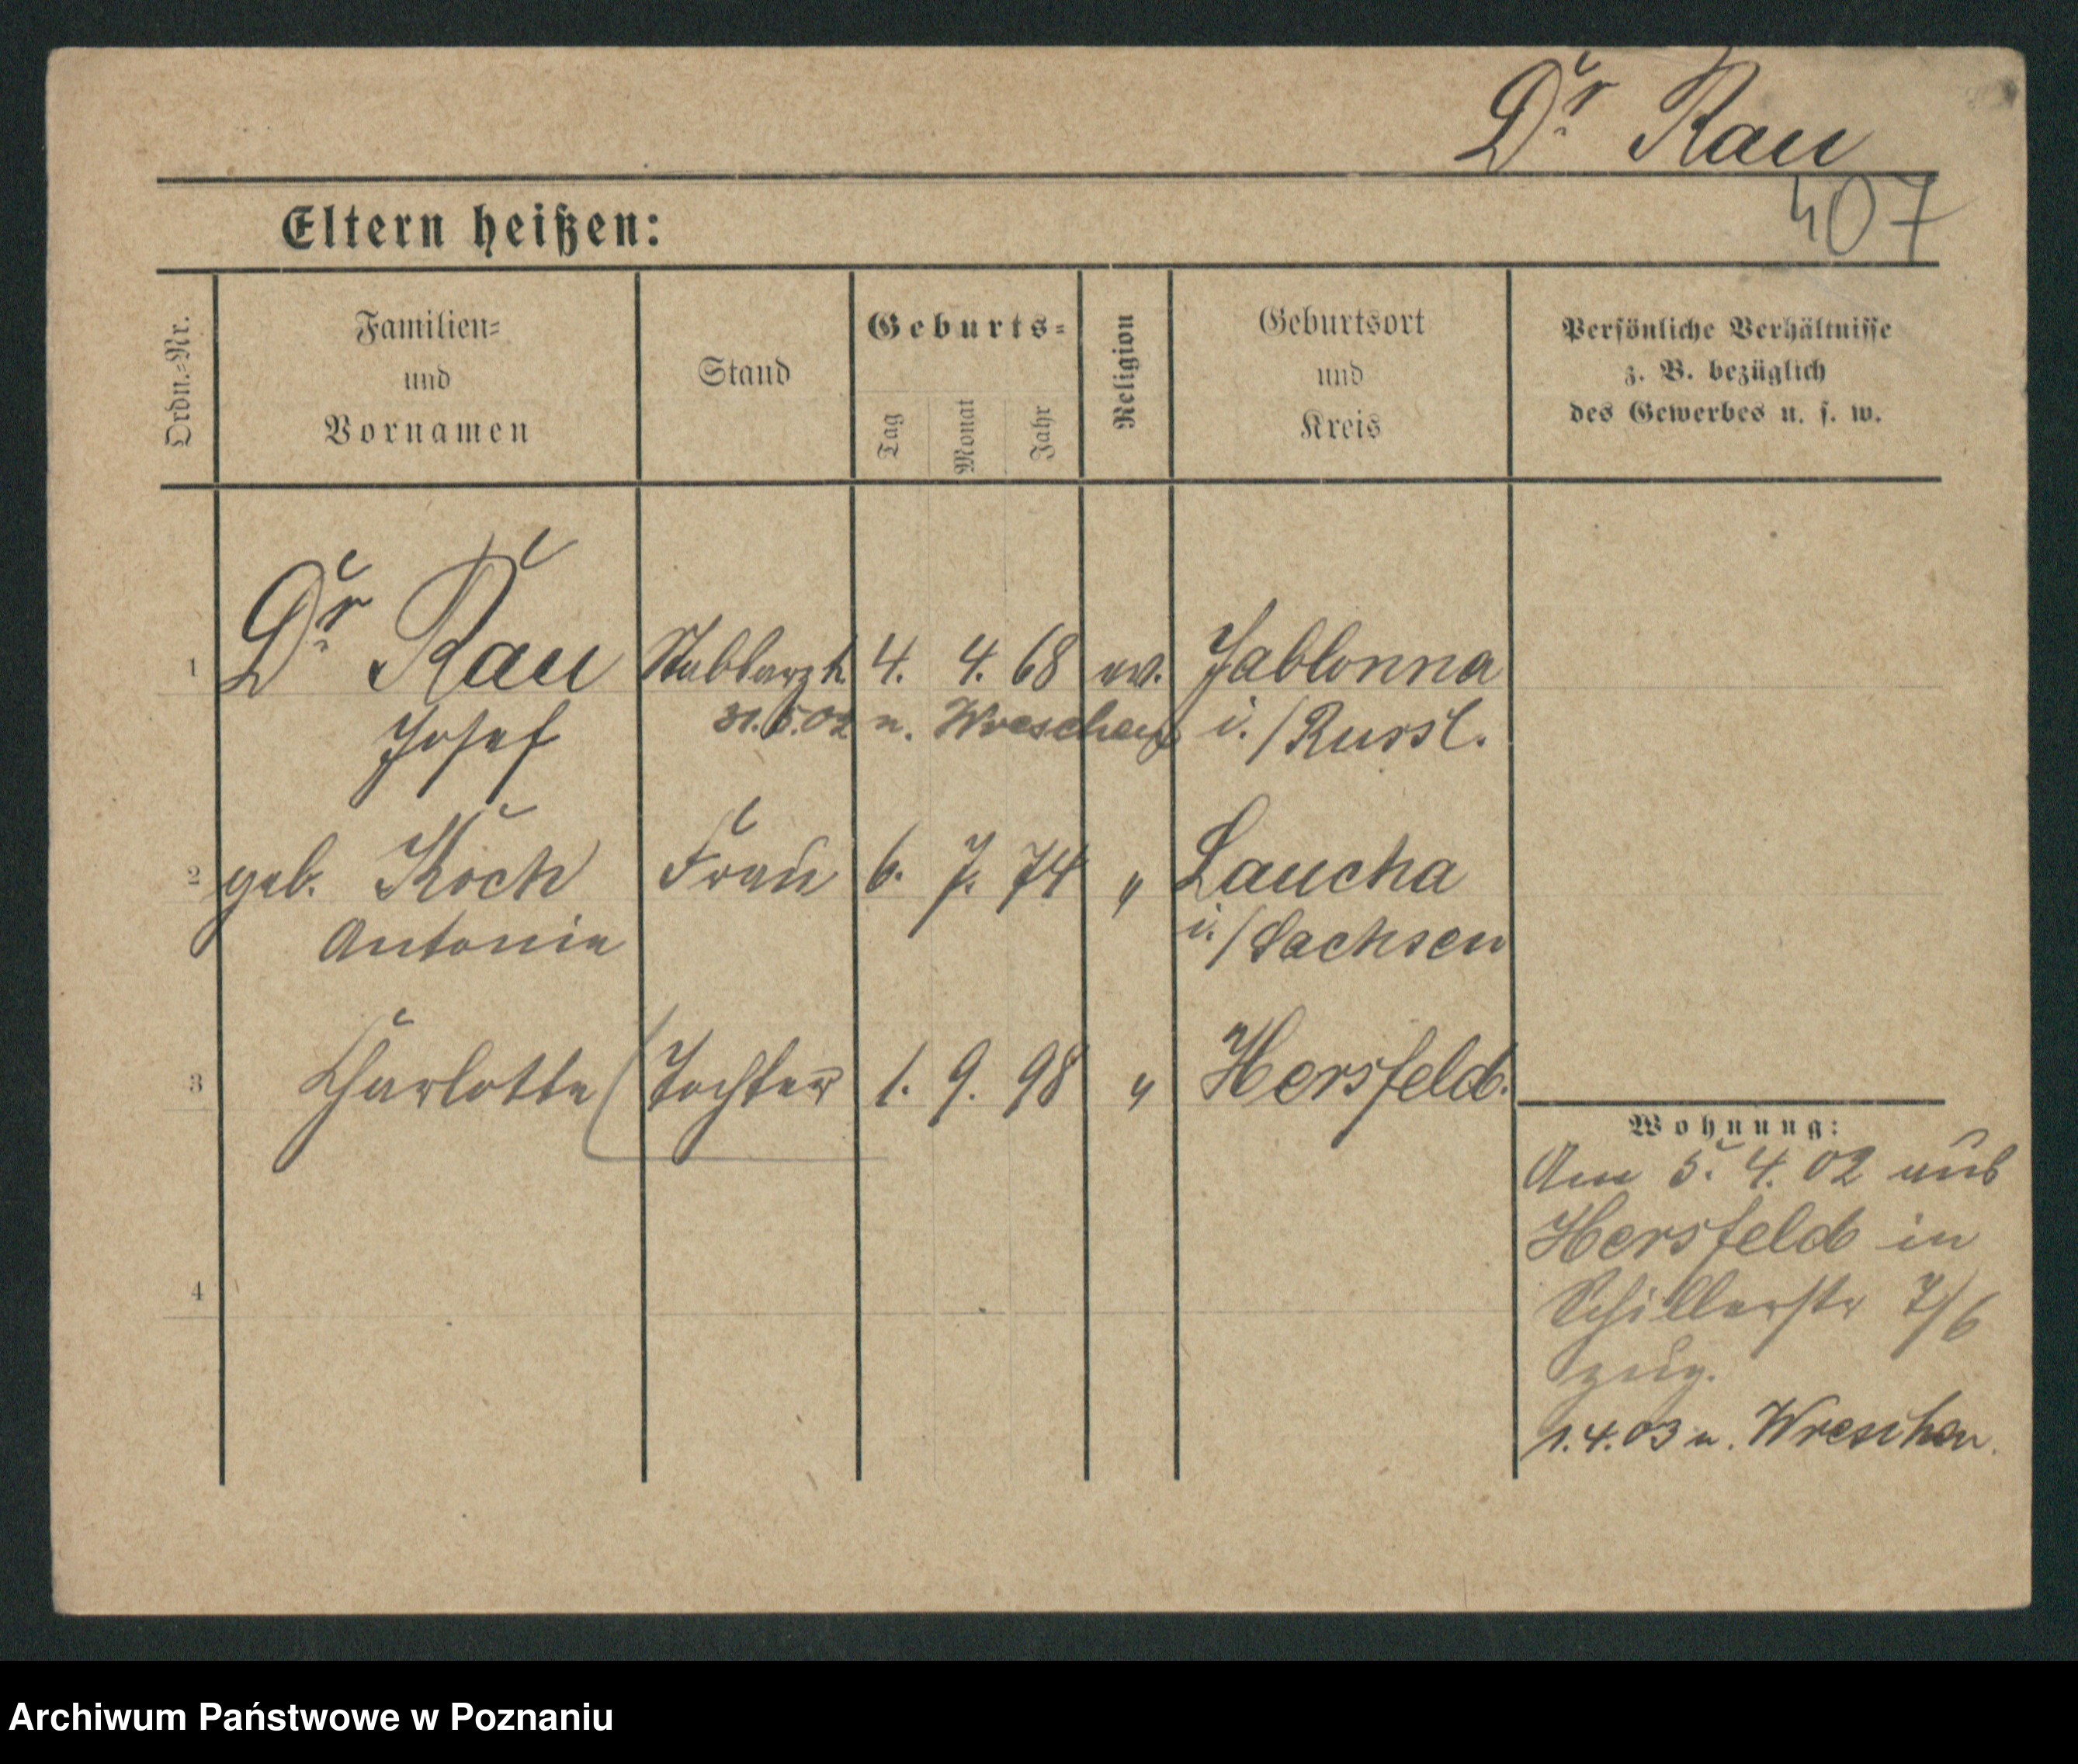 Dr. Rau
407
Eltern heißen:
Ordn.-Nr.
Familien-
und
Vornamen
Stand
Geburts-
Tag
Monat
Jahr
Religion
Geburtsort
und
Kreis
Persönliche Verhältnisse
z. B. bezüglich
des Gewerbes u. s. w.
1 Dr. Rau Stabsarzt 4. 4. 68 ev. Jablonna
Josef 31.5.02 n. Wreschen i./Russl.
2 geb. Koch Frau 6. 7. 74 " Laucha
Antonie i./Sachsen
3 Charlotte Tochter 1. 9. 98 " Hersfeld.
Wohnung:
Am 5. 4. 02 aus
Hersfeld in
4 Schillerstr 7/6
zug.
1.4.03 n. Wreschen.
Archiwum Państwowe w Poznaniu